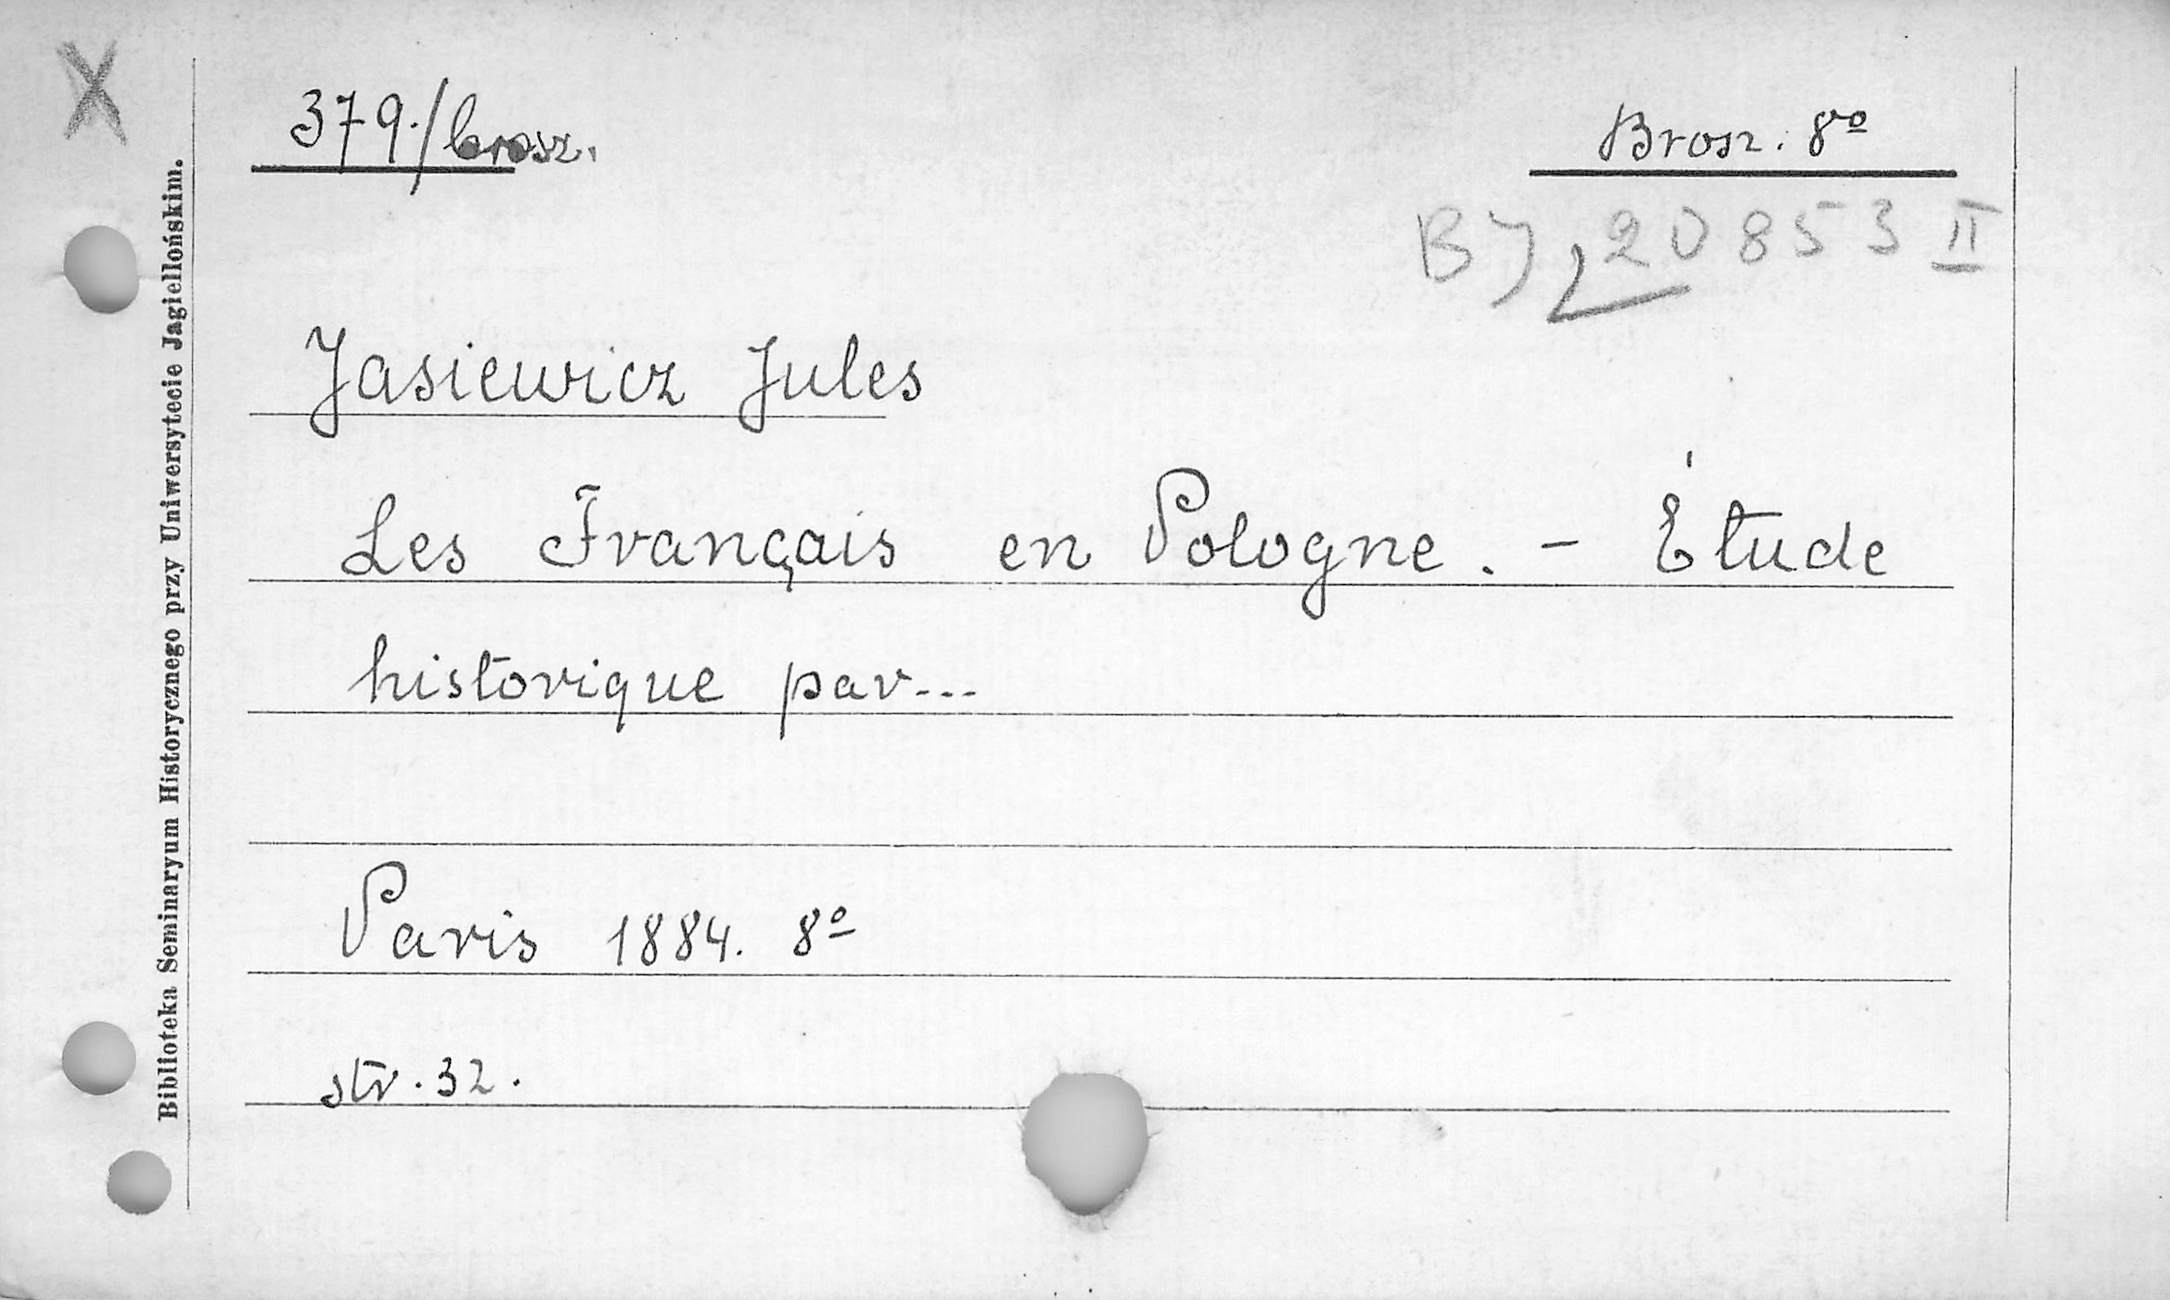 X
379./brosz.
Brosz. 8º
BJ 20853 II
Jasiewicz Jules
Les Français en Pologne. - Étude
historique par...
Paris 1884. 8º
str. 32.
Biblioteka Seminaryum Historycznego przy Uniwersytecie Jagiellońskim.